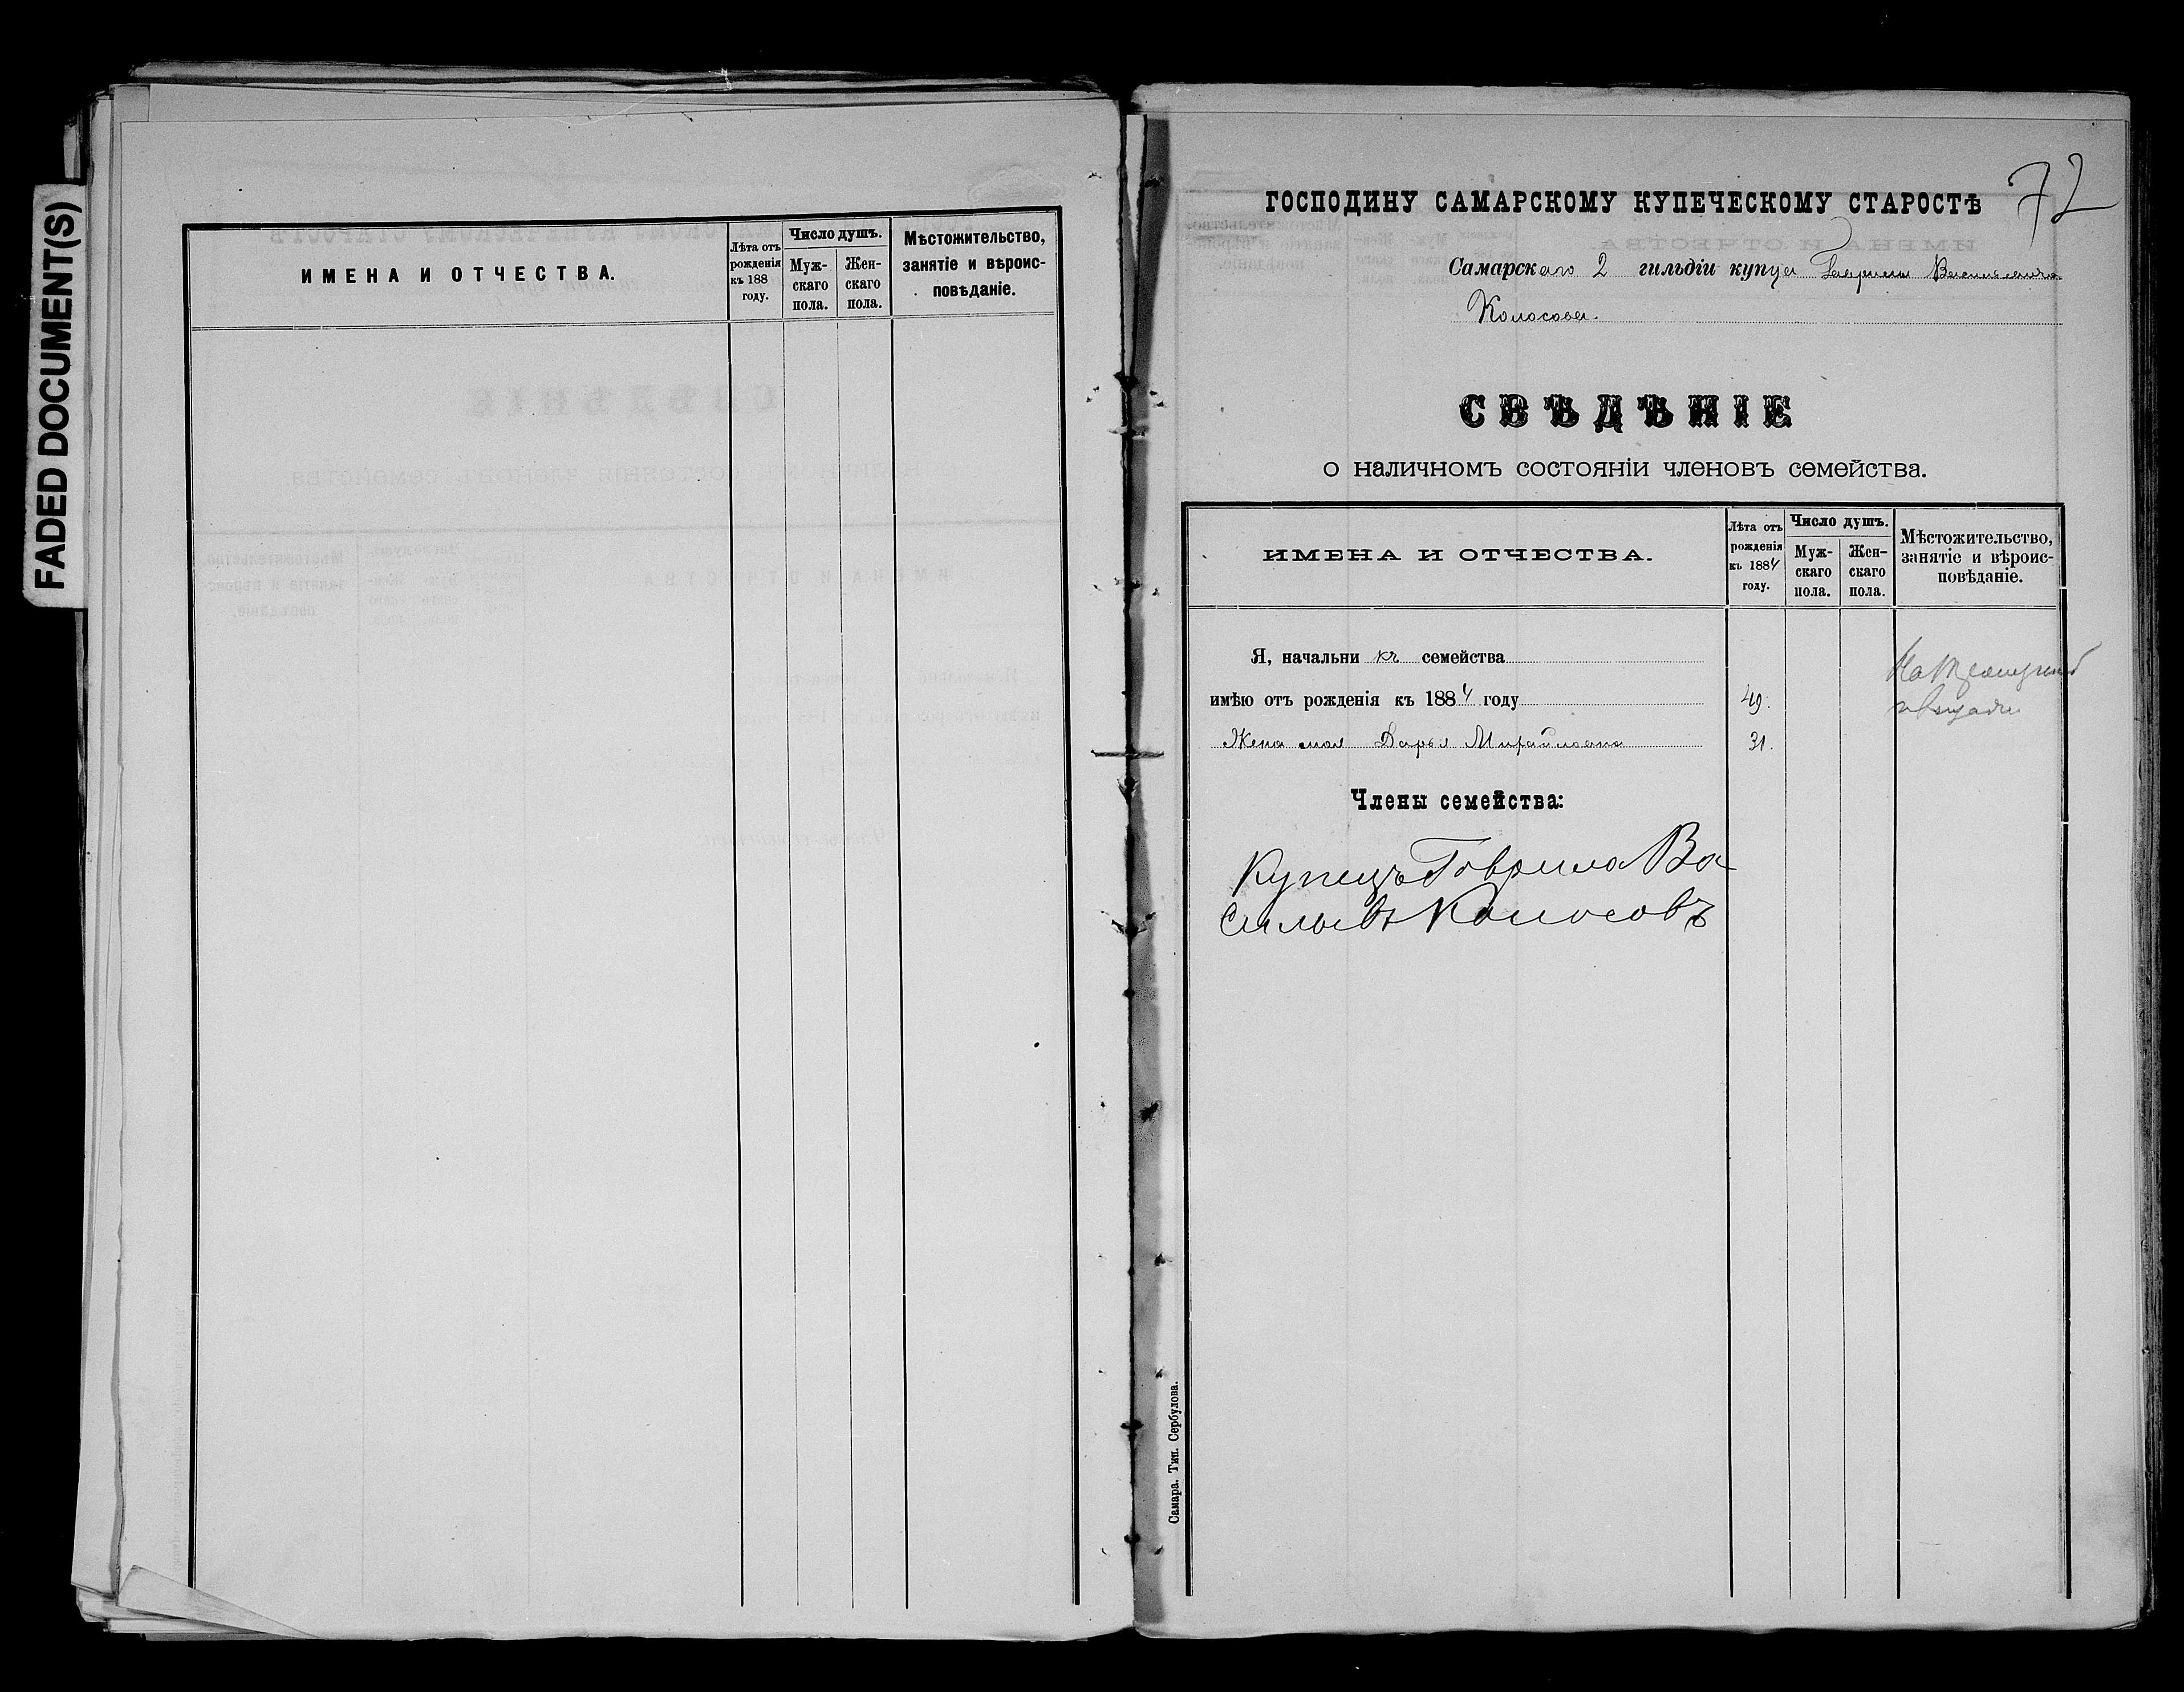 FADED DOCUMENT(S)
ИМЕНА И ОТЧЕСТВА.
Лѣта отъ рожденія къ 188 году.
Число душъ.
Мужскаго пола.
Женскаго пола.
Мѣстожительство, занятіе и вѣроисповѣданіе.
72
ГОСПОДИНУ САМАРСКОМУ КУПЕЧЕСКОМУ СТАРОСТѢ
Самарскаго 2 гильдіи купца Гаврилы Васильевича
Колосова.
СВѢДѢНІЕ
о наличномъ состояніи членовъ семейства.
ИМЕНА И ОТЧЕСТВА.
Лѣта отъ рожденія къ 1884 году.
Число душъ.
Мужскаго пола.
Женскаго пола.
Мѣстожительство, занятіе и вѣроисповѣданіе.
Я, начальникъ семейства
имѣю отъ рожденія къ 1884 году 49.
Жена моя Дарья Михайловна 31.
На
Члены семейства:
Купецъ Гаврила Ва
сильевъ Колосовъ
Самара. Тип. Сербулова.